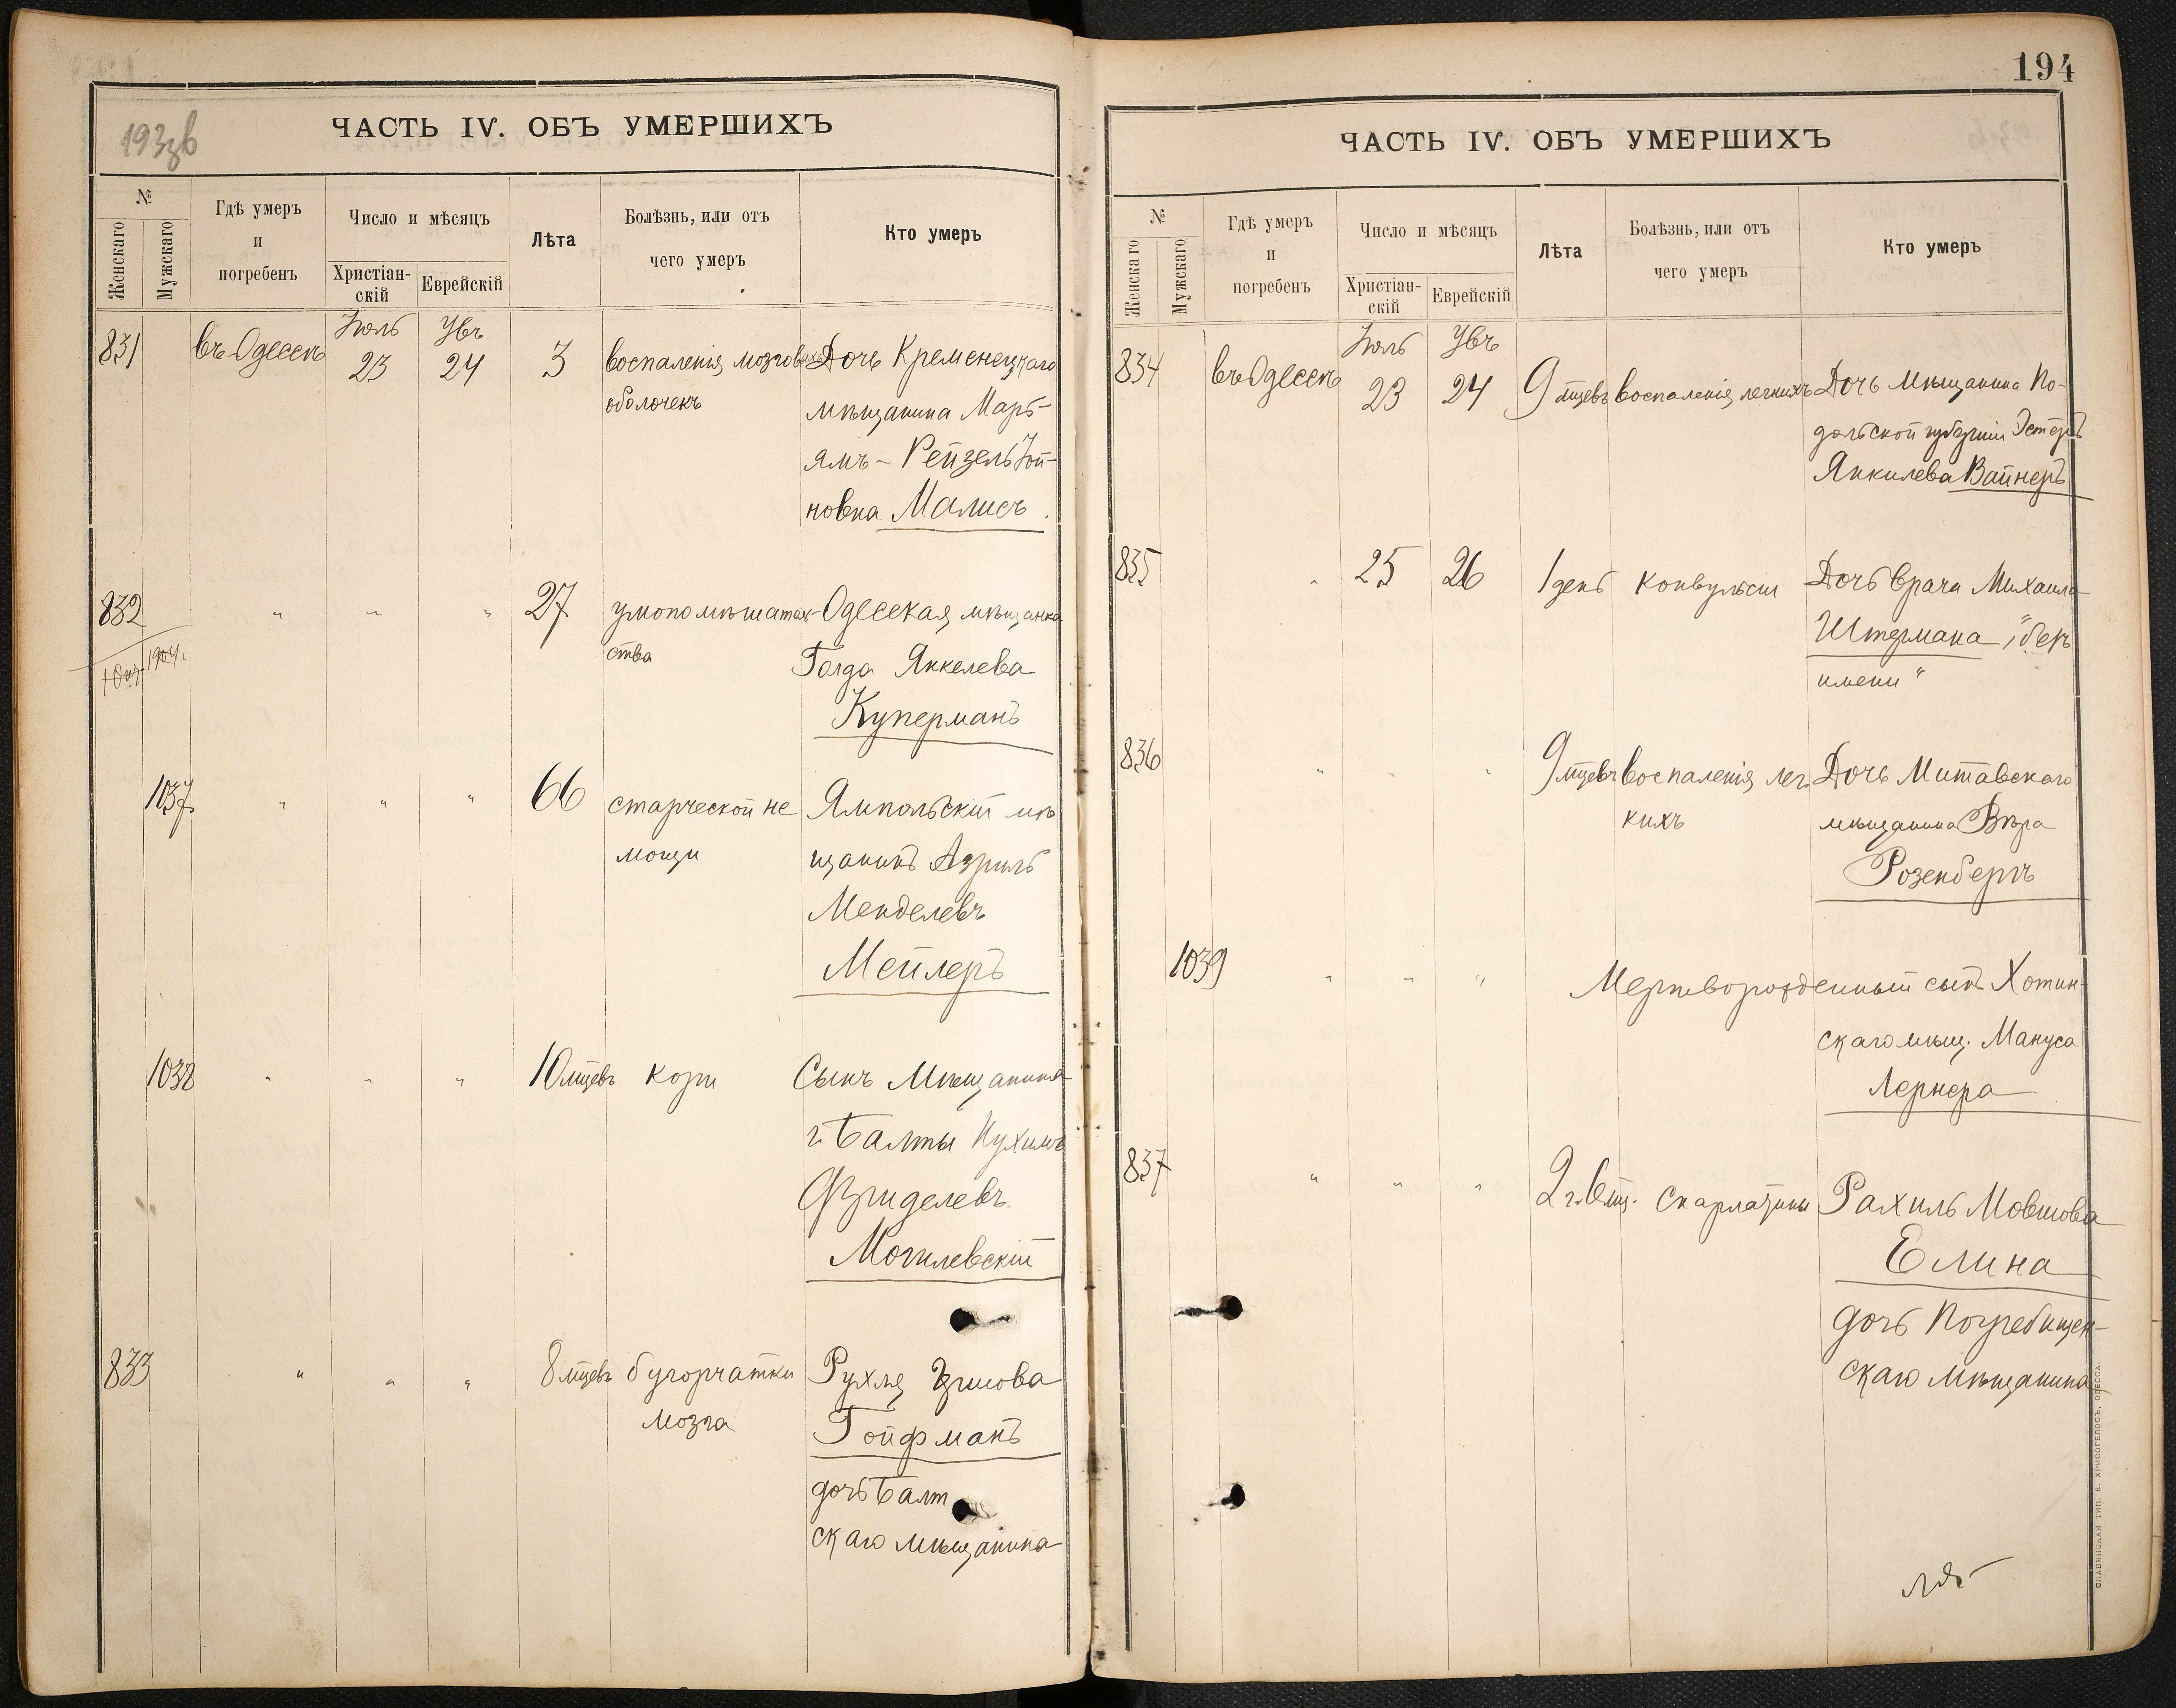 193зв
ЧАСТЬ IV. ОБЪ УМЕРШИХЪ
№
Женскаго
Мужскаго
Гдѣ умеръ
и
погребенъ
Число и мѣсяцъ
Христіан-
скій
Еврейскій
Лѣта
Болѣзнь, или отъ
чего умеръ
Кто умеръ
Іюль Увъ
831 въ Одессѣ 23 24 3 воспаленія мозговыхъ Дочь Кременецкаго
оболочекъ
мѣщанина Марь-
ямъ-Рейзель Іой-
новна Малисъ.
832 " " " 27 умопомѣшатель- Одесская мѣщанка
ства
Голда Янкелева
Куперманъ
1904.
1037 " " " 66 старческой не Ямпольскій мѣ
мощи
щанинъ Азриль
Менделевъ
Мейлеръ
1038 " " " 10 мцевъ кори Сынъ Мѣщанина
г. Балты Нухимъ
Фриделевъ
Могилевскій
833 " " " 8 мцевъ бугорчатки Рухля
мозга
Гойфманъ
дочь Балт
скаго мѣщанина
194
ЧАСТЬ IV. ОБЪ УМЕРШИХЪ
№
Женскаго
Мужскаго
Гдѣ умеръ
и
погребенъ
Число и мѣсяцъ
Христіан-
скій
Еврейскій
Лѣта
Болѣзнь, или отъ
чего умеръ
Кто умеръ
Іюль Увъ
834 въ Одессѣ 23 24 9 мцевъ воспаленія легкихъ Дочь мѣщанина По-
дольской губерніи Эстеръ
Янкилева Вайнеръ
835 " 25 26 1 день конвульсіи Дочь врача Михаила
Штермана "безъ
имени"
836 " " " 9 мцевъ воспаленія лег Дочь Митавскаго
кихъ
мѣщанина Вѣра
Розенбергъ
1039 " " " Мертворожденный сынъ Хотин-
скаго мѣщ. Мануса
Лернера
837 " " " 2 г. 6 мц. скарлатины Рахиль Мовшова
Елина
дочь Погребищен-
скаго мѣщанина
СЛАВЯНСКАЯ ТИП. Е. ХРИСОГЕЛОСЪ, ОДЕССА.